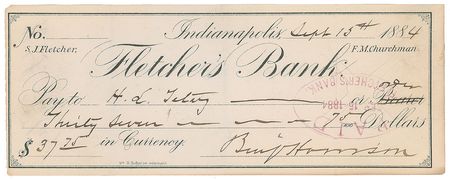 No. Indianapolis, Sept 15th 1884
S.J. Fletcher. F.M. Churchman.
Fletcher's Bank,
Pay to H. L. or order Bearer
Thirty seven 75 Dollars
$ 37 75 in Currency. Benj Harrison
FLETCHER'S BANK
15 1884
PAID